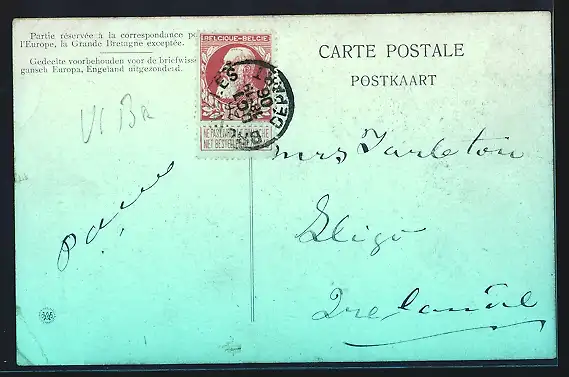 Partie réservée à la correspondance po
l'Europe, la Grande Bretagne exceptée.
Gedeelte voorbehouden voor de briefwiss
gansch Europa, Engeland uitgezonderd.
BELGIQUE·BELGIE
NE PAS LIVRER LE DIMANCHE
NIET BESTELLEN
DEPART
CARTE POSTALE
POSTKAART
Mrs Tarleton
Sligo
Irelande